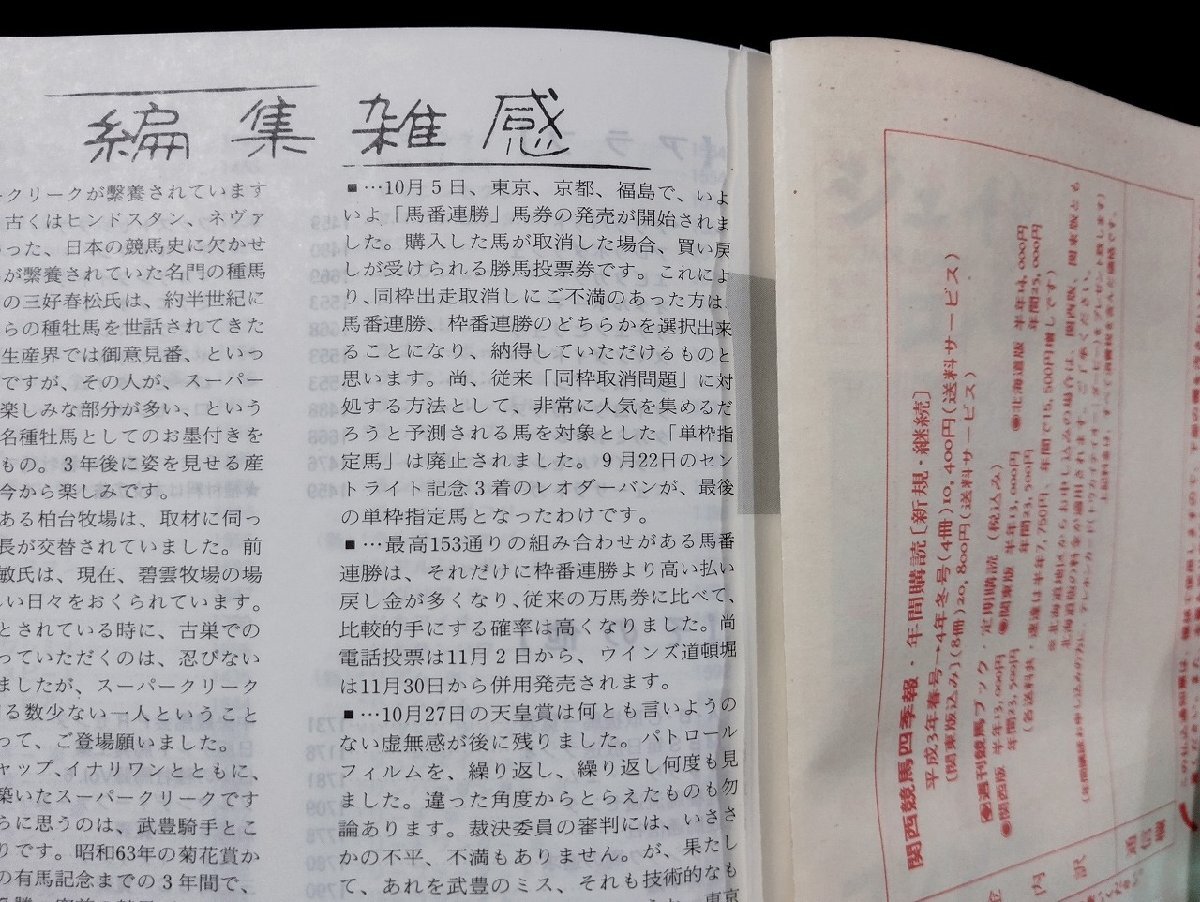 編集雑感
ークリークが繋養されています
古くはヒンドスタン、ネヴァ
った、日本の競馬史に欠かせ
が繋養されていた名門の種馬
の三好春松氏は、約半世紀に
らの種牡馬を世話されてきた
生産界では御意見番、といっ
ですが、その人が、スーパー
楽しみな部分が多い、という
名種牡馬としてのお墨付きを
もの。3年後に姿を見せる産
今から楽しみです。
ある柏台牧場は、取材に伺っ
長が交替されていました。前
敏氏は、現在、碧雲牧場の場
い日々をおくられています。
とされている時に、古巣での
っていただくのは、忍びない
ましたが、スーパークリーク
る数少ない一人ということ
って、ご登場願いました。
ャップ、イナリワンとともに、
築いたスーパークリークです
うに思うのは、武豊騎手とこ
りです。昭和63年の菊花賞か
の有馬記念までの3年間で、
■…10月5日、東京、京都、福島で、いよ
いよ「馬番連勝」馬券の発売が開始されま
した。購入した馬が取消した場合、買い戻
しが受けられる勝馬投票券です。これによ
り、同枠出走取消しにご不満のあった方は、
馬番連勝、枠番連勝のどちらかを選択出来
ることになり、納得していただけるものと
思います。尚、従来「同枠取消問題」に対
処する方法として、非常に人気を集めるだ
ろうと予測される馬を対象とした「単枠指
定馬」は廃止されました。9月22日のセン
トライト記念3着のレオダーバンが、最後
の単枠指定馬となったわけです。
■…最高153通りの組み合わせがある馬番
連勝は、それだけに枠番連勝より高い払い
戻し金が多くなり、従来の万馬券に比べて、
比較的手にする確率は高くなりました。尚
電話投票は11月2日から、ウインズ道頓堀
は11月30日から併用発売されます。
■…10月27日の天皇賞は何とも言いようの
ない虚無感が後に残りました。パトロール
フィルムを、繰り返し、繰り返し何度も見
ました。違った角度からとらえたものも勿
論あります。裁決委員の審判には、いささ
かの不平、不満もありません。が、果たし
て、あれを武豊のミス、それも技術的なも
関西競馬四季報・年間購読［新規・継続］
平成3年春号→4年冬号(4冊)10,400円(送料サービス)
(関東版込み)(8冊)20,800円(送料サービス)
週刊競馬ブック・定期購読（税込み）
●関西版 半年13,000円 年間23,500円
●関東版 半年13,000円 年間23,500円
●北海道版 半年14,000円 年間25,000円